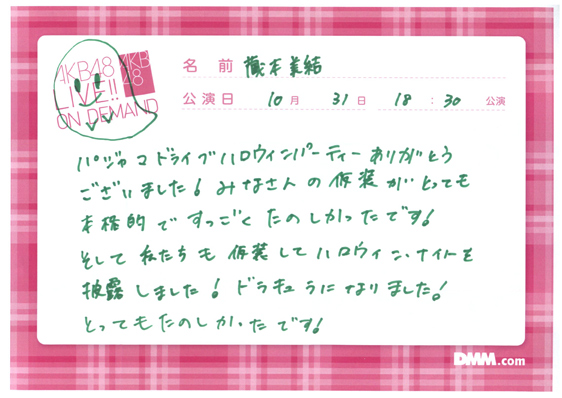 AKB48
LIVE!!
ON DEMAND
AKB
48
名前 蔵本美結
公演日 10月 31日 18:30 公演
パジャマドライブハロウィンパーティーありがとう
ございました！みなさんの仮装がとっても
本格的ですっごくたのしかったです！
そして私たちも仮装してハロウィン・ナイトを
披露しました！ドラキュラになりました！
とってもたのしかったです！
DMM.com